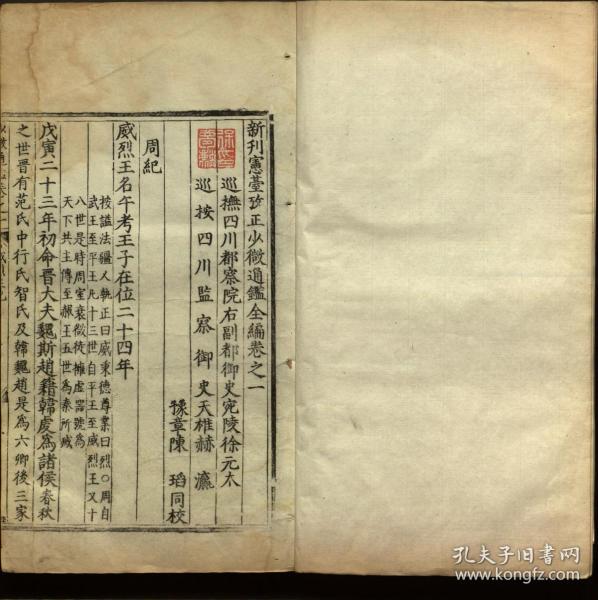 新刊憲臺攷正少微通鑑全編卷之一
巡撫四川都察院右副都御史宛陵徐元太
巡按四川監察御史天雄赫瀛
豫章陳瑫同校
周紀
威烈王名午考王子在位二十四年
按諡法彊人執正曰威秉德尊業曰烈○周自
武王至平王凡十三世自平王至威烈王又十
八世是時周室衰微徒擁虛器號為
天下共主傳至赧王五世為秦所滅
戊寅二十三年初命晉大夫魏斯趙籍韓虔為諸侯春秋
之世晉有范氏中行氏智氏及韓魏趙是為六卿後三家
孔夫子旧书网
www.kongfz.com